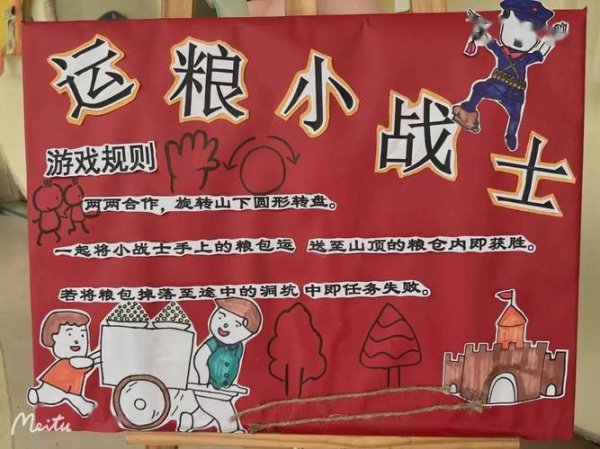 运粮小战士
游戏规则
两两合作，旋转山下圆形转盘。
一起将小战士手上的粮包运 送至山顶的粮仓内即获胜。
若将粮包掉落至途中的洞坑 中即任务失败。
Meitu